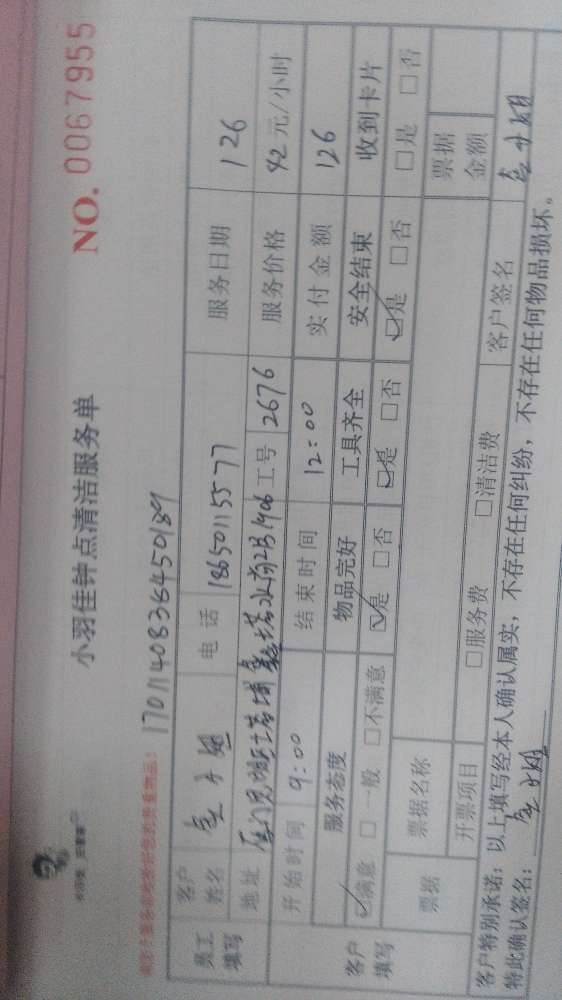 小羽佳钟点清洁服务单
NO. 0067955
员工填写
客户姓名
电话
18650115577
服务日期
126
地址
工号
2676
服务价格
42元/小时
开始时间
9:00
结束时间
12:00
实付金额
126
客户填写
服务态度
物品完好
工具齐全
安全结束
收到卡片
☑满意 □一般 □不满意
☑是 □否
☑是 □否
☑是 □否
□是 □否
票据
票据名称
票据金额
开票项目
□服务费 □清洁费
客户签名
客户特别承诺:以上填写经本人确认属实,不存在任何纠纷,不存在任何物品损坏。
特此确认签名: